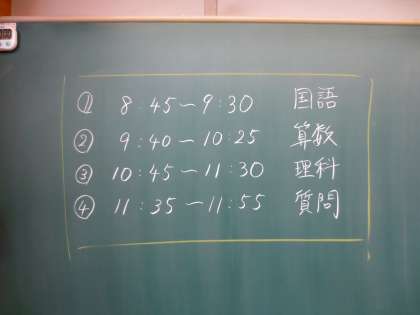 ① 8:45〜9:30 国語
② 9:40〜10:25 算数
③ 10:45〜11:30 理科
④ 11:35〜11:55 質問